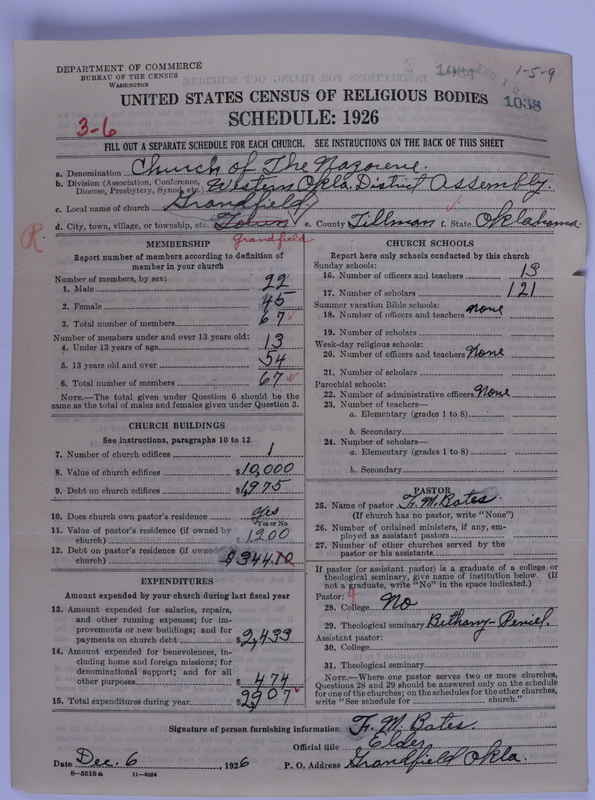 DEPARTMENT OF COMMERCE
BUREAU OF THE CENSUS
WASHINGTON
1-5-9
1038
UNITED STATES CENSUS OF RELIGIOUS BODIES
SCHEDULE: 1926
3-6
FILL OUT A SEPARATE SCHEDULE FOR EACH CHURCH. SEE INSTRUCTIONS ON THE BACK OF THIS SHEET
a. Denomination Church of The Nazarene.
b. Division (Association, Conference, Diocese, Presbytery, Synod, etc.) Western Okla. District Assembly.
c. Local name of church Grandfield
d. City, town, village, or township, etc. Town e. County Tillman f. State Oklahoma
Grandfield
R.
MEMBERSHIP
Report number of members according to definition of
member in your church
Number of members, by sex:
1. Male 22
2. Female 45
3. Total number of members 67
Number of members under and over 13 years old:
4. Under 13 years of age 13
5. 13 years old and over 54
6. Total number of members 67
NOTE.—The total given under Question 6 should be the
same as the total of males and females given under Question 3.
CHURCH BUILDINGS
See instructions, paragraphs 10 to 12
7. Number of church edifices 1
8. Value of church edifices $10,000
9. Debt on church edifices $1,975
10. Does church own pastor's residence yes
Yes or No
11. Value of pastor's residence (if owned by
church) $1200
12. Debt on pastor's residence (if owned by
church) $344.10
EXPENDITURES
Amount expended by your church during last fiscal year
13. Amount expended for salaries, repairs,
and other running expenses; for im-
provements or new buildings; and for
payments on church debt $2,433
14. Amount expended for benevolences, in-
cluding home and foreign missions; for
denominational support; and for all
other purposes $474
15. Total expenditures during year $2907
CHURCH SCHOOLS
Report here only schools conducted by this church
Sunday schools:
16. Number of officers and teachers 13
17. Number of scholars 121
Summer vacation Bible schools:
18. Number of officers and teachers none
19. Number of scholars
Week-day religious schools:
20. Number of officers and teachers None
21. Number of scholars
Parochial schools:
22. Number of administrative officers None
23. Number of teachers—
a. Elementary (grades 1 to 8)
b. Secondary
24. Number of scholars—
a. Elementary (grades 1 to 8)
b. Secondary
PASTOR
25. Name of pastor F. M. Bates.
(If church has no pastor, write "None")
26. Number of ordained ministers, if any, em-
ployed as assistant pastors
27. Number of other churches served by the
pastor or his assistants
If pastor (or assistant pastor) is a graduate of a college or
theological seminary, give name of institution below. (If
not a graduate, write "No" in the space indicated.)
Pastor: 4
28. College No
29. Theological seminary Bethany-Peniel.
Assistant pastor:
30. College
31. Theological seminary
NOTE.—Where one pastor serves two or more churches,
Questions 28 and 29 should be answered only on the schedule
for one of the churches; on the schedules for the other churches,
write "See schedule for church."
Signature of person furnishing information F. M. Bates.
Official title Elder
Date Dec. 6, 1926 P. O. Address Grandfield Okla.
8-5518 a 11-9084